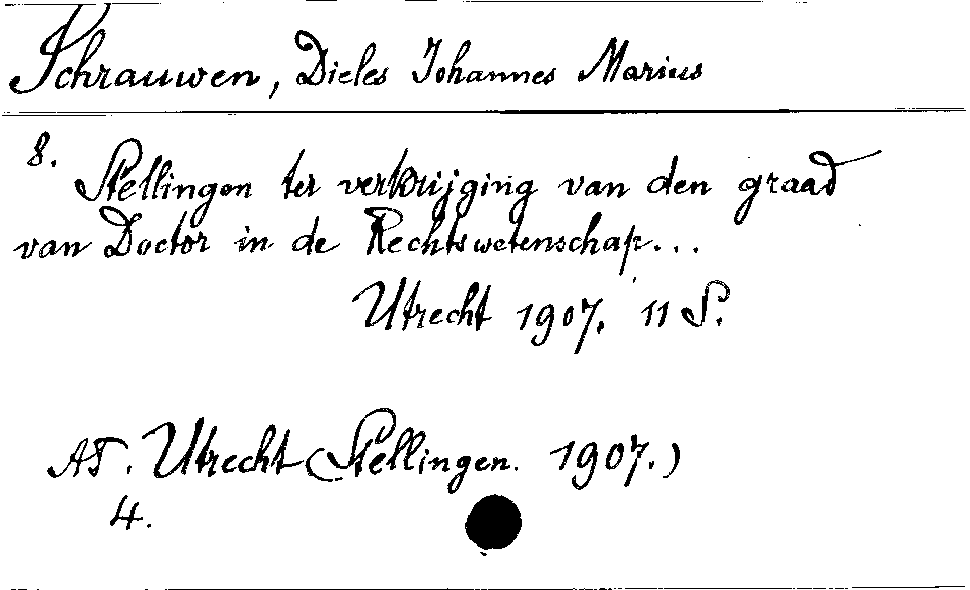 Schrauwen, Dieles Johannes Marius
8.
Stellingen ter verkrijging van den graad
van Doctor in de Rechtswetenschap...
Utrecht 1907. 11 S.
AT. Utrecht (Stellingen. 1907.)
4.